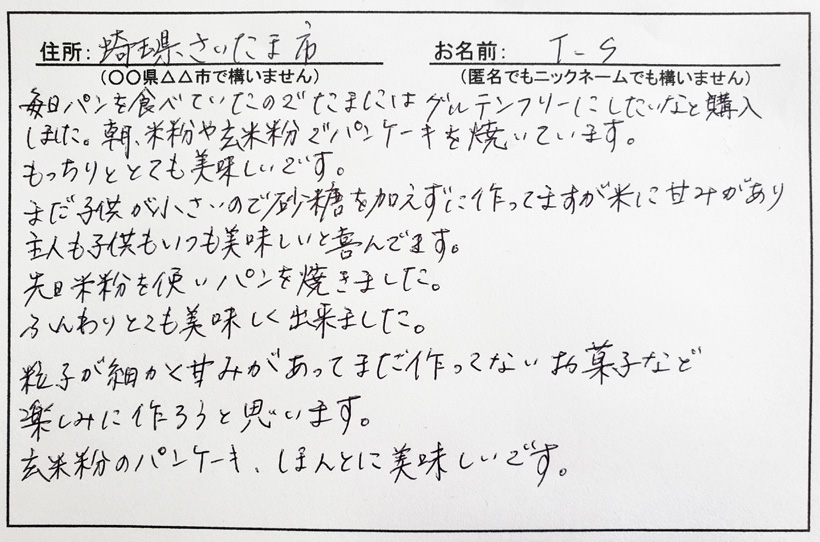 住所: 埼玉県さいたま市 お名前: T-S
(〇〇県△△市で構いません) (匿名でもニックネームでも構いません)
毎日パンを食べていたのでたまにはグルテンフリーにしたいなと購入
しました。朝、米粉や玄米粉でパンケーキを焼いています。
もっちりととても美味しいです。
まだ子供が小さいので砂糖を加えずに作ってますが米に甘みがあり
主人も子供もいつも美味しいと喜んでます。
先日米粉を使いパンを焼きました。
ふんわりとても美味しく出来ました。
粒子が細かく甘みがあってまだ作ってないお菓子など
楽しみに作ろうと思います。
玄米粉のパンケーキ、ほんとに美味しいです。